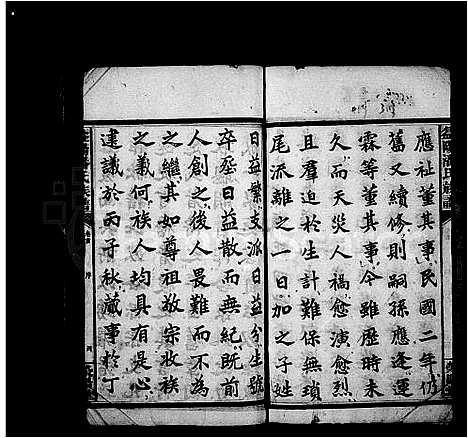 應祉董其事民國二年仍
舊又續修則嗣孫應逢運
霖等董其事今雖歷時未
久而天災人禍愈演愈烈
且羣迫於生計難保無瑣
尾流離之一日加之子姓
日益繁支派日益分生娶
卒塟日益散而無紀旣前
人創之後人畏難而不為
之繼其如尊祖故宗收族
之義何族人均具有是心
建議於丙子秋蕆事於丁